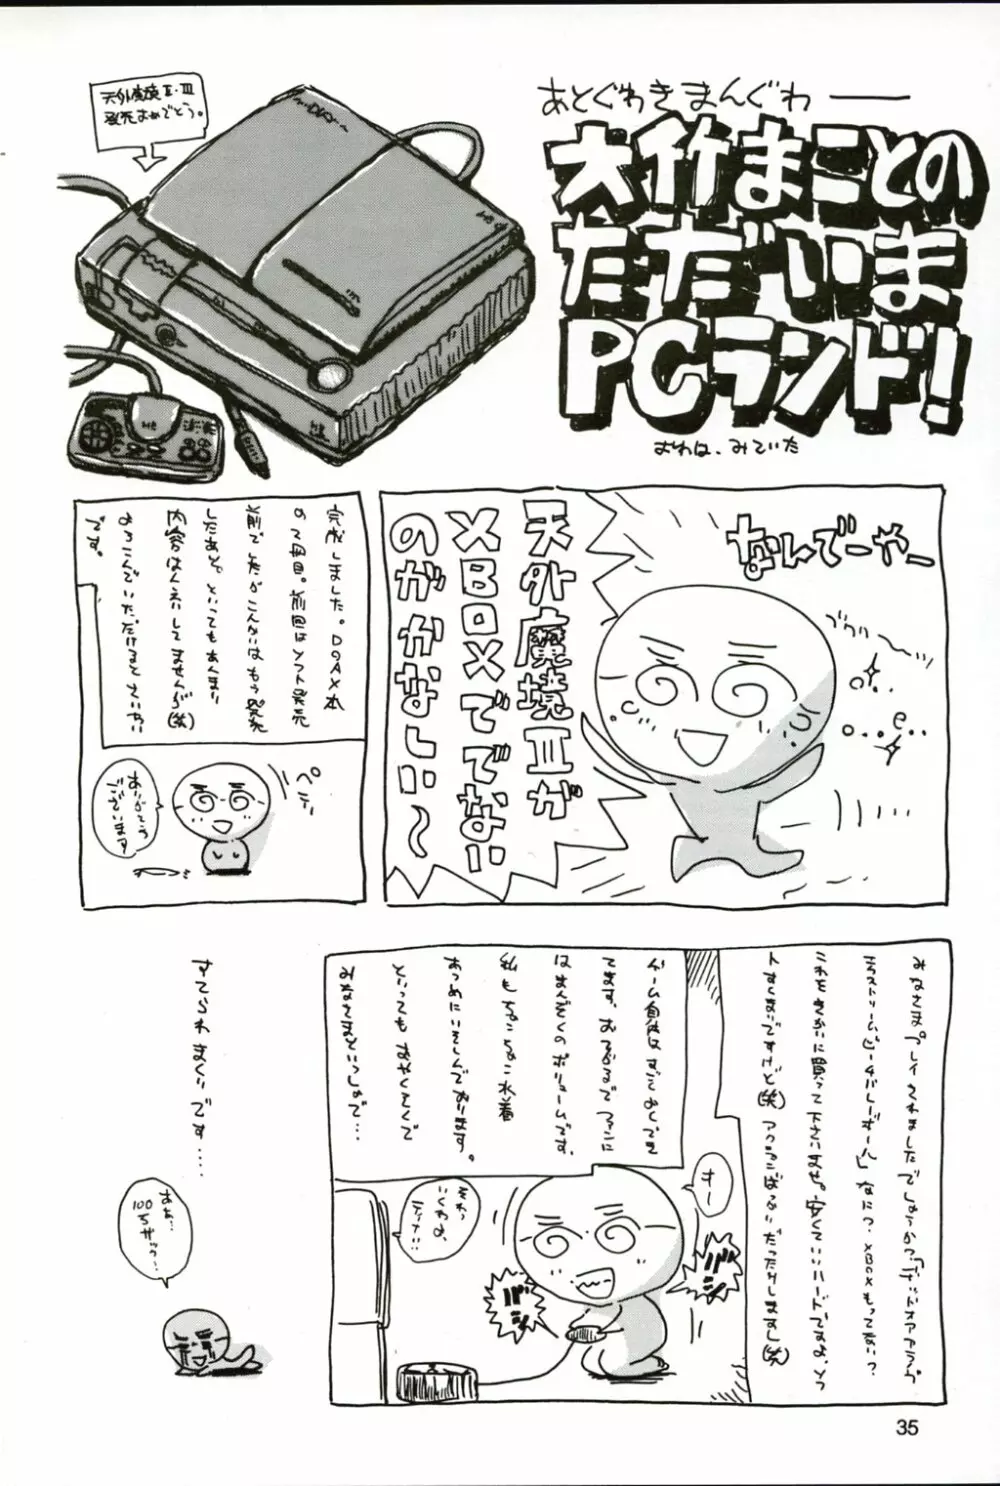 天外魔境Ⅱ・Ⅲ
発売おめでとう。
あとぐわきまんぐわ
大竹まことの
ただいま
PCランド!
おわは、みていた
なんでーやー
天外魔境Ⅲが
XBOXででない
のがかなしい〜
完成しました。DOAX本
の2冊目。前回はソフト発売
前でしたがこんかいはもう発売
したあと。といってもあんまり
内容はんえいしてませんが(笑)
よろこんでいただけるとさいわい
です。
ペこ
ありがとう
ございます
みなさま。プレイされましたでしょうか?「デッドオアアライブ
エクストリームビーチバレーボール」なに?XBOXもってない?
これをきかいに買って下さいませ。安くていいハードですよ、ソフ
トすくないですけど(笑)アクションばっかいだったりしますし(笑)
ゲーム自体はすごしおしてき
てます。
はまんぞくのボリュームです。
私もちょこちょこ水着
あつめにいそしんでおります。
といってもおやくそくで
みなさまといっしょで…
すてられまくりです……
すー
バシ
バシ
それっ
いくわよ
ああ…
100万ザック…
35